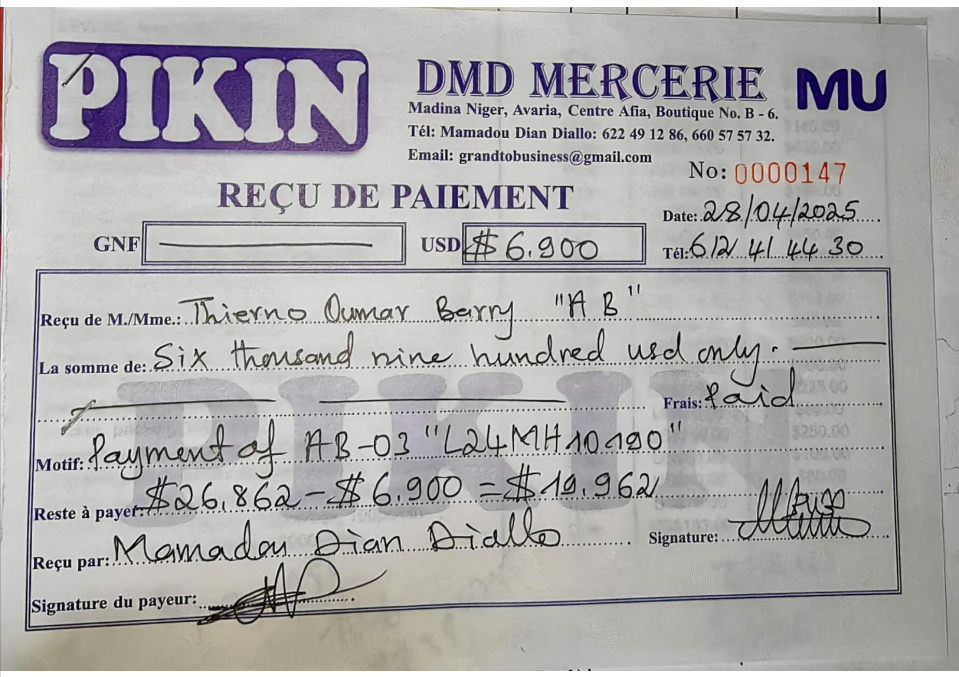 PIKIN
DMD MERCERIE MU
Madina Niger, Avaria, Centre Afia, Boutique No. B - 6.
Tél: Mamadou Dian Diallo: 622 49 12 86, 660 57 57 32.
Email: grandtobusiness@gmail.com
No: 0000147
REÇU DE PAIEMENT
Date: 28/04/2025
GNF USD $ 6.900 Tél: 612 41 44 30
Reçu de M./Mme.: Thierno Oumar Barry "A B"
La somme de: Six thousand nine hundred usd only.
Frais: Paid
Motif: Payment of AB-03 "L24MH10190"
Reste à payer: $26,862 - $6.900 = $19,962
Reçu par: Mamadou Dian Diallo Signature:
Signature du payeur:
PIKIN